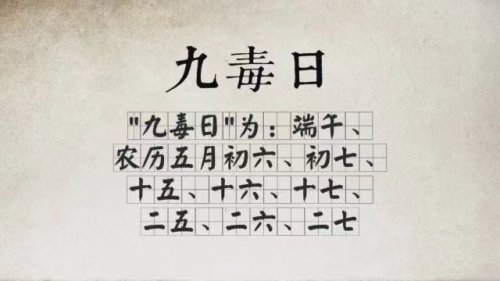 九毒日
"九毒日"为：端午、
农历五月初六、初七、
十五、十六、十七、
二五、二六、二七